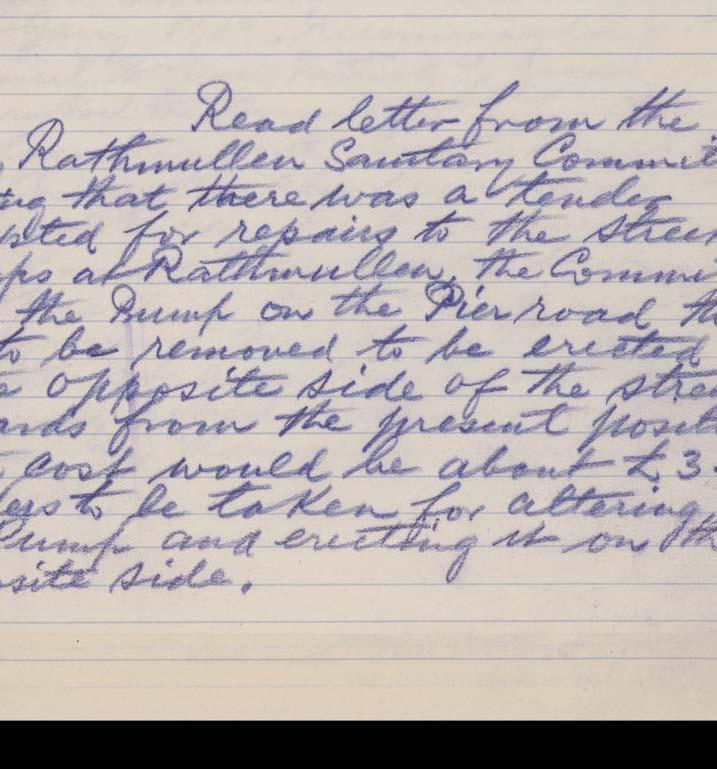 Read letter from the
Rathmullen Sanitary Commit
ing that there was a tender
pted for repairs to the Stree
ps at Rathmullen, the Commi
the Pump on the Pier road th
to be removed to be erected
e opposite side of the stree
ards from the present posit
cost would be about £3
to be taken for altering
Pump and erecting it on th
site side.